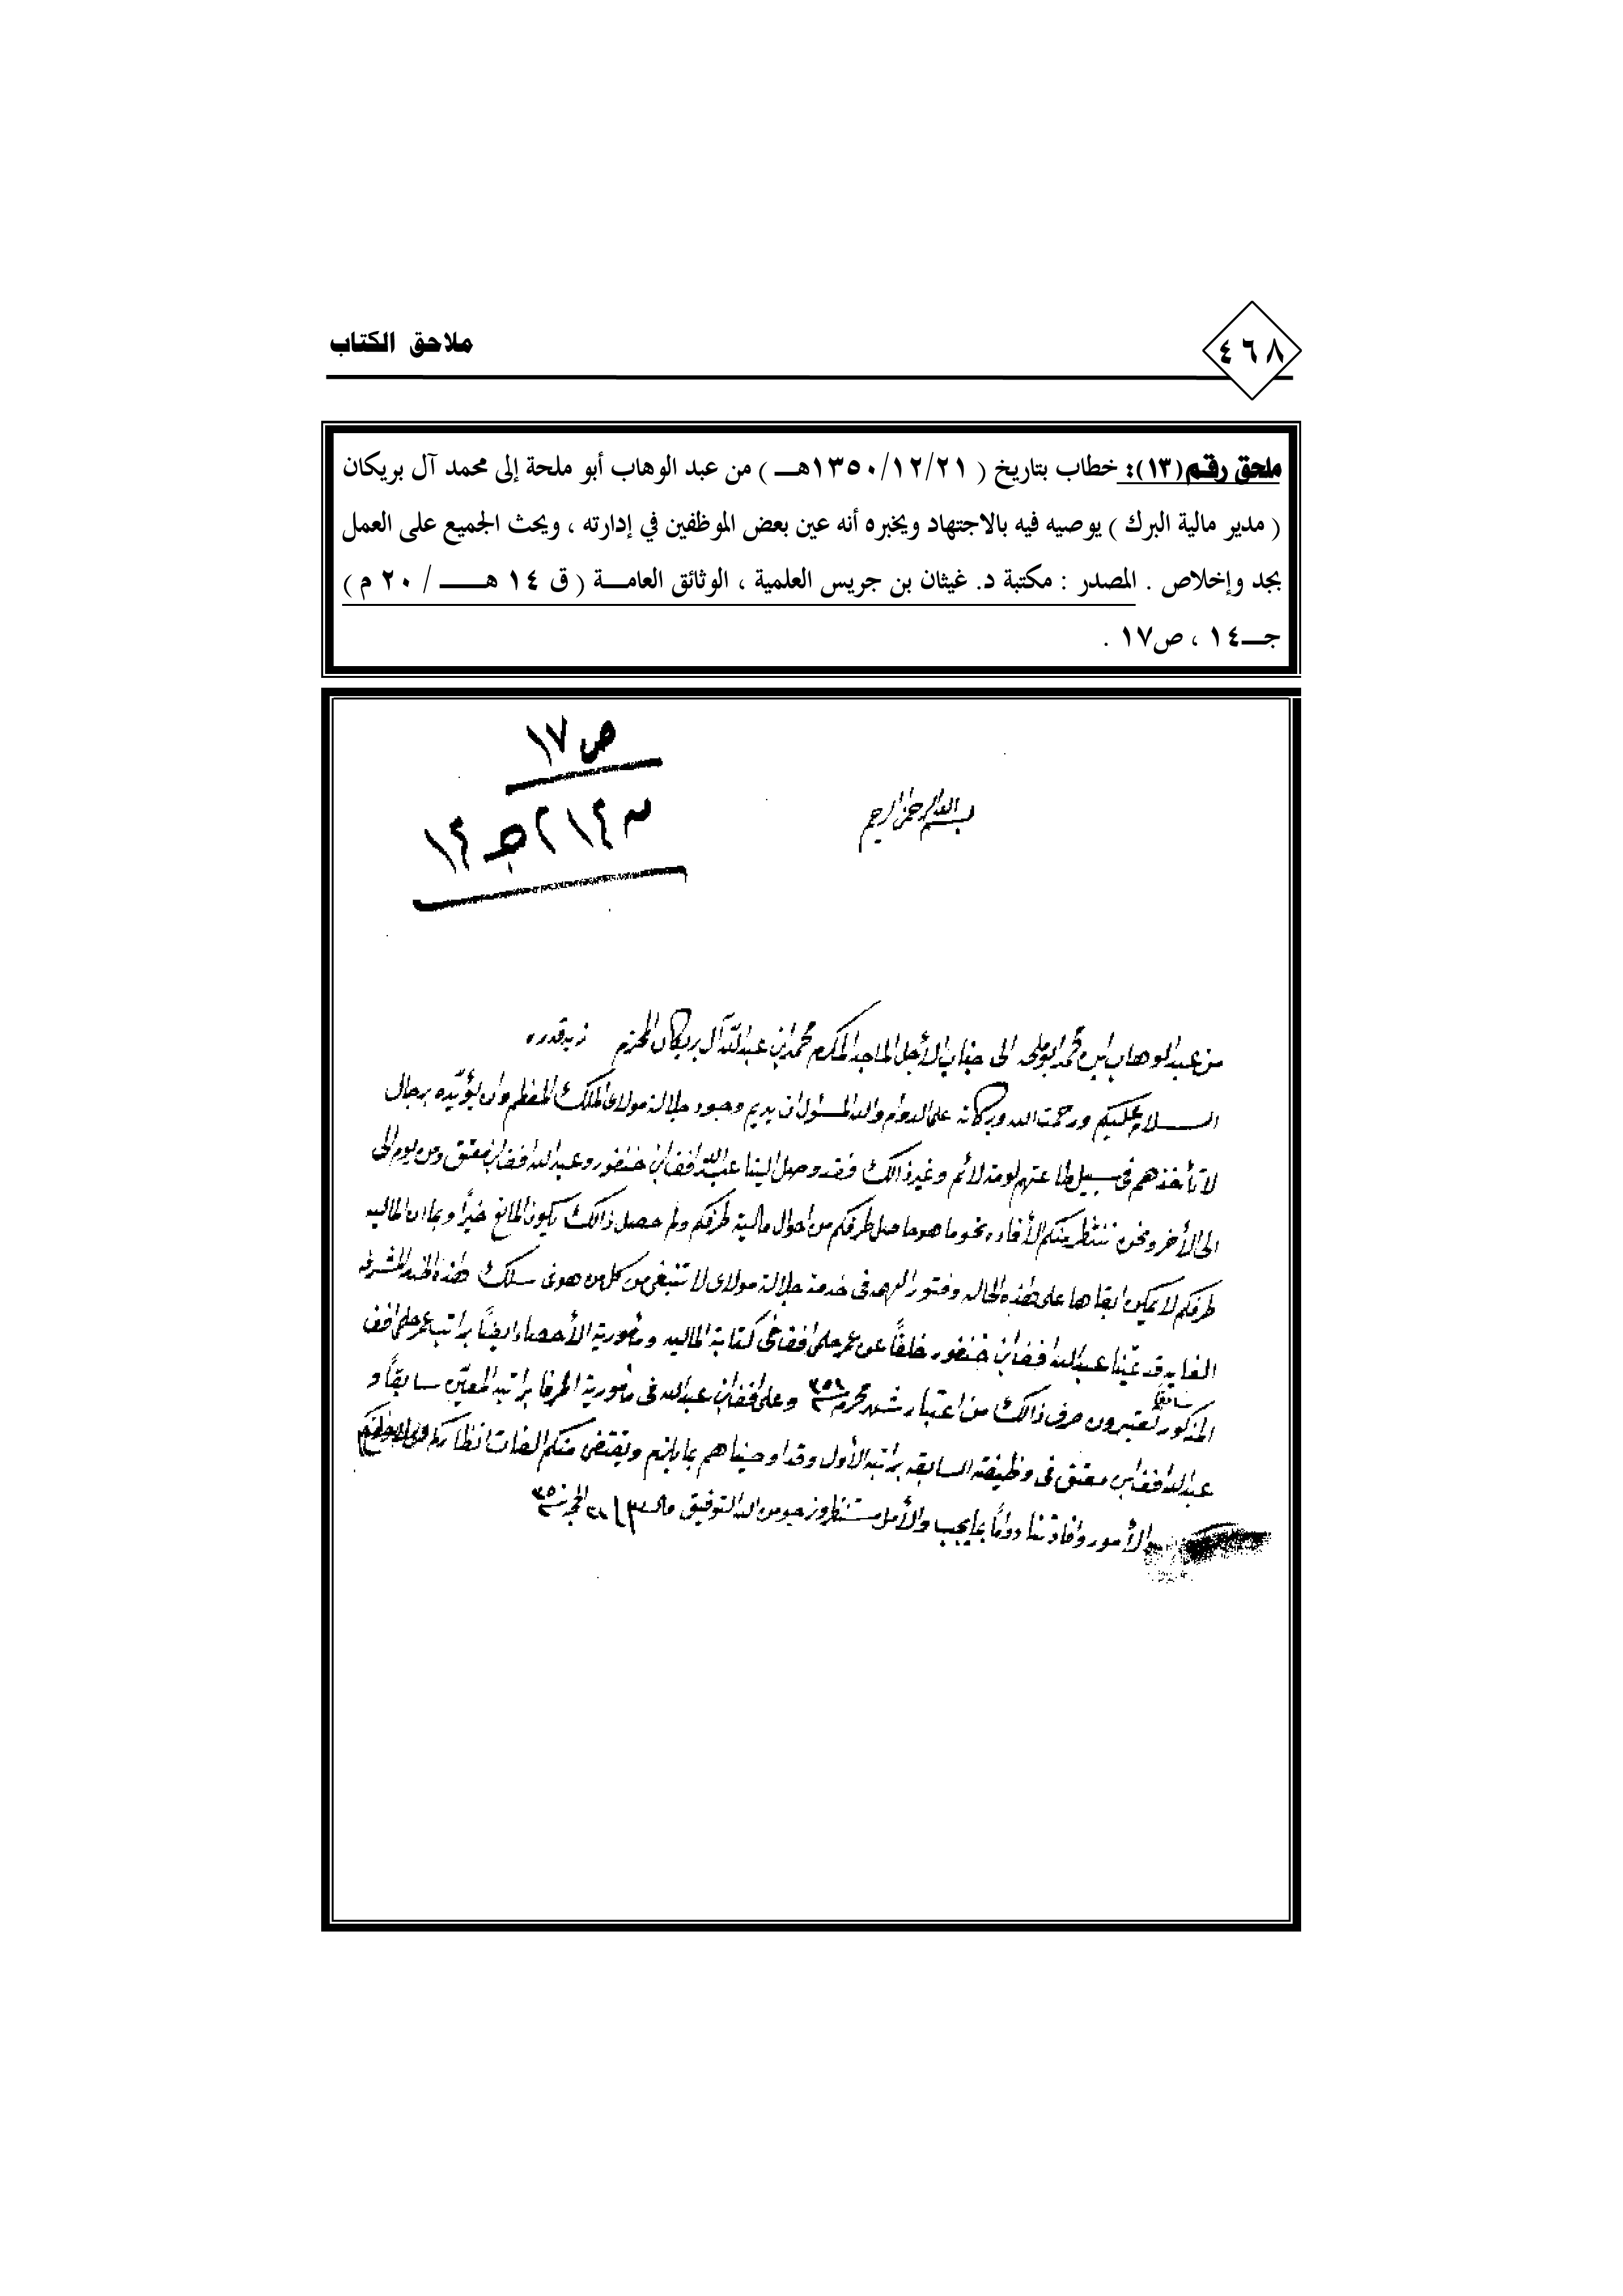 ملاحق الكتاب
٤٦٨
ملحق رقم(١٣): خطاب بتاريخ ( ١٣٥٠/١٢/٢١هـــ ) من عبد الوهاب أبو ملحة إلى محمد آل بريكان
( مدير مالية البرك ) يوصيه فيه بالاجتهاد ويخبره أنه عين بعض الموظفين في إدارته ، ويحث الجميع على العمل
بجد وإخلاص . المصدر : مكتبة د. غيثان بن جريس العلمية ، الوثائق العامـــة ( ق ١٤ هـــــ / ٢٠ م )
جـــ١٤ ، ص١٧ .
ص١٧
بسم الله الرحمن الرحيم
من عبد الوهاب ابن محمد ابوملحه الى جناب الأجل الماجد المكرم محمد ابن عبدالله آل بريكان المحترم زيد قدره
الســـلام عليكم ورحمت الله وبركاته على الدوام والله المسئول ان يديم وجود جلالة مولاى الملك المعظم وان يؤيّده برجال
لا تأخذهم فى سبيل طاعتهم لومة لائم وغير ذالك فقد وصل الينا عبدالله افندى ابن خنفور وعبدالله افندى ابن معتق ومن يوم الى
الى الأخر ونحن ننتظر منكم الأفاده نحو ما هو حاصل طرفكم من احوال مالية طرفكم ولم حصل ذالك يكون المانع خيرًا وبما ان الماليه
طرفكم لا يمكن ابقاها على هذه الحاله وفتور الهمه فى خدمة جلالة مولاى لا تنبغى من كل من هو فى سلك هذه الخدمه الشريفه
الغايه قد عيّنا عبدالله افندى ابن خنفور خلفًا عن عمر حلمى افندى فى كتابة الماليه ومأمورية الأحصاء ايضًا براتب عمر حلمى افندى
سابقًا
المذكور تعتبرون صرف ذالك من اعتبار شهر محرم سنة ٣٥١ وعلى افندى ابن عبدالله فى مأمورية المرفا براتبه المعيّن سابقًا و
عبدالله افندى ابن معتق فى وظيفته السابقه براتبه الأول وقد اوصيناهم بما يلزم ونقتضى منكم الفات انظاركم
الأمور وافادتنا دوامًا بما يجب والأمل منتظر ونرجو من الله التوفيق